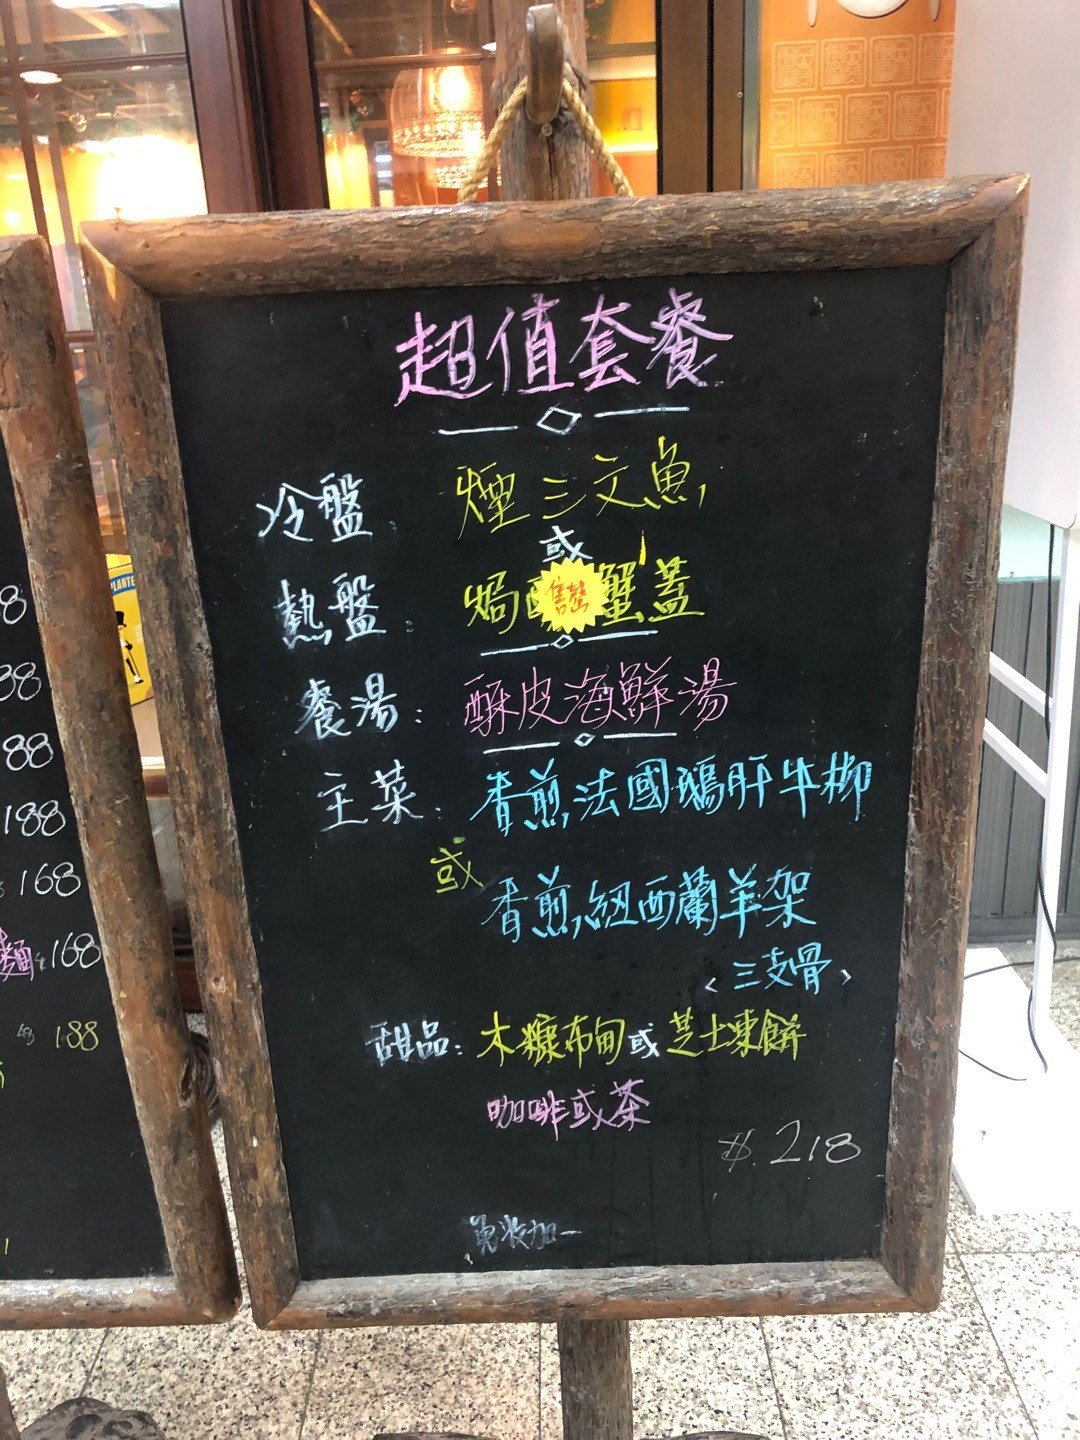 超值套餐
冷盤: 煙三文魚
或
熱盤: 焗釀蟹蓋
售罄
餐湯: 酥皮海鮮湯
主菜: 香煎法國鵝肝牛柳
或 香煎紐西蘭羊架
<三支骨>
甜品: 木糠布甸或芝士凍餅
咖啡或茶
$.218
免收加一
8
38
88
188
168
麵 168
188
PLANTE